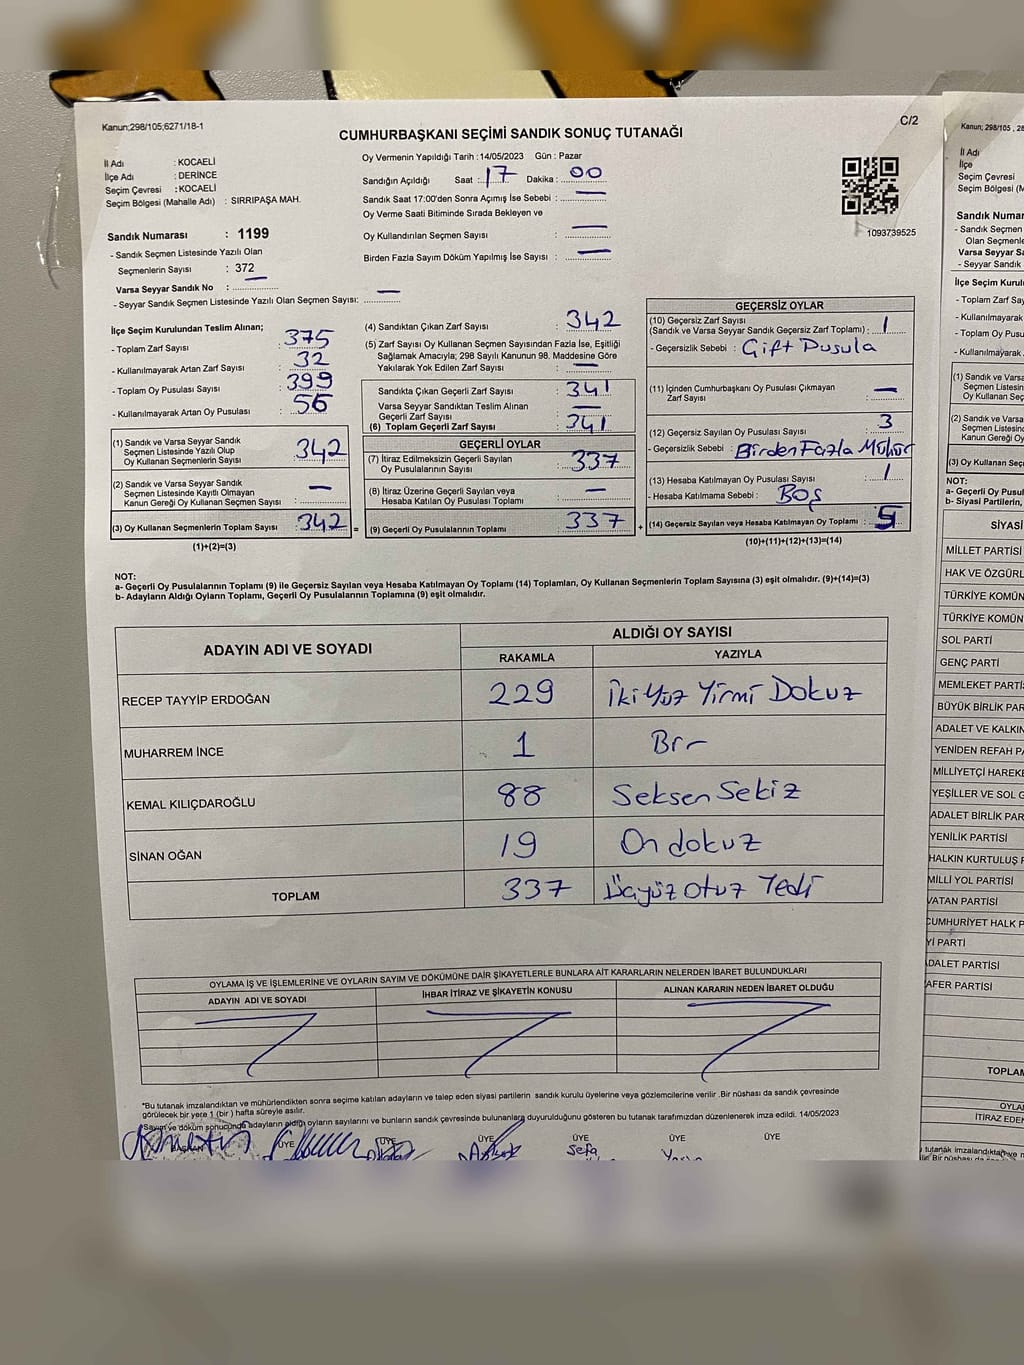 Kanun;298/105;6271/18-1
C/2
CUMHURBAŞKANI SEÇİMİ SANDIK SONUÇ TUTANAĞI
İl Adı : KOCAELİ
İlçe Adı : DERİNCE
Seçim Çevresi : KOCAELİ
Seçim Bölgesi (Mahalle Adı) : SIRRIPAŞA MAH.
Sandık Numarası : 1199
- Sandık Seçmen Listesinde Yazılı Olan
Seçmenlerin Sayısı : 372
Varsa Seyyar Sandık No : —
- Seyyar Sandık Seçmen Listesinde Yazılı Olan Seçmen Sayısı: —
Oy Vermenin Yapıldığı Tarih : 14/05/2023 Gün : Pazar
Sandığın Açıldığı Saat : 17 Dakika : 00
Sandık Saat 17:00'den Sonra Açımış İse Sebebi : —
Oy Verme Saati Bitiminde Sırada Bekleyen ve
Oy Kullandırılan Seçmen Sayısı : —
Birden Fazla Sayım Döküm Yapılmış İse Sayısı : —
1093739525
İlçe Seçim Kurulundan Teslim Alınan;
- Toplam Zarf Sayısı : 375
- Kullanılmayarak Artan Zarf Sayısı : 32
- Toplam Oy Pusulası Sayısı : 399
- Kullanılmayarak Artan Oy Pusulası : 56
(1) Sandık ve Varsa Seyyar Sandık
Seçmen Listesinde Yazılı Olup
Oy Kullanan Seçmenlerin Sayısı : 342
(2) Sandık ve Varsa Seyyar Sandık
Seçmen Listesinde Kayıtlı Olmayan
Kanun Gereği Oy Kullanan Seçmen Sayısı : —
(3) Oy Kullanan Seçmenlerin Toplam Sayısı : 342 =
(1)+(2)=(3)
(4) Sandıktan Çıkan Zarf Sayısı : 342
(5) Zarf Sayısı Oy Kullanan Seçmen Sayısından Fazla İse, Eşitliği
Sağlamak Amacıyla; 298 Sayılı Kanunun 98. Maddesine Göre
Yakılarak Yok Edilen Zarf Sayısı : —
Sandıkta Çıkan Geçerli Zarf Sayısı : 341
Varsa Seyyar Sandıktan Teslim Alınan
Geçerli Zarf Sayısı : —
(6) Toplam Geçerli Zarf Sayısı : 341
GEÇERLİ OYLAR
(7) İtiraz Edilmeksizin Geçerli Sayılan
Oy Pusulalarının Sayısı : 337
(8) İtiraz Üzerine Geçerli Sayılan veya
Hesaba Katılan Oy Pusulası Toplamı : —
(9) Geçerli Oy Pusulalarının Toplamı : 337 +
GEÇERSİZ OYLAR
(10) Geçersiz Zarf Sayısı
(Sandık ve Varsa Seyyar Sandık Geçersiz Zarf Toplamı) : 1
- Geçersizlik Sebebi : Çift Pusula
(11) İçinden Cumhurbaşkanı Oy Pusulası Çıkmayan
Zarf Sayısı : —
(12) Geçersiz Sayılan Oy Pusulası Sayısı : 3
- Geçersizlik Sebebi : Birden Fazla Mühür
(13) Hesaba Katılmayan Oy Pusulası Sayısı : 1
- Hesaba Katılmama Sebebi : Boş
(14) Geçersiz Sayılan veya Hesaba Katılmayan Oy Toplamı : 5
(10)+(11)+(12)+(13)=(14)
NOT:
a- Geçerli Oy Pusulalarının Toplamı (9) ile Geçersiz Sayılan veya Hesaba Katılmayan Oy Toplamı (14) Toplamları, Oy Kullanan Seçmenlerin Toplam Sayısına (3) eşit olmalıdır. (9)+(14)=(3)
b- Adayların Aldığı Oyların Toplamı, Geçerli Oy Pusulalarının Toplamına (9) eşit olmalıdır.
ADAYIN ADI VE SOYADI
ALDIĞI OY SAYISI
RAKAMLA YAZIYLA
RECEP TAYYİP ERDOĞAN 229 İki Yüz Yirmi Dokuz
MUHARREM İNCE 1 Bir
KEMAL KILIÇDAROĞLU 88 Seksen Sekiz
SİNAN OĞAN 19 On dokuz
TOPLAM 337 Üçyüz Otuz Yedi
OYLAMA İŞ VE İŞLEMLERİNE VE OYLARIN SAYIM VE DÖKÜMÜNE DAİR ŞİKAYETLERLE BUNLARA AİT KARARLARIN NELERDEN İBARET BULUNDUKLARI
ADAYIN ADI VE SOYADI İHBAR İTİRAZ VE ŞİKAYETİN KONUSU ALINAN KARARIN NEDEN İBARET OLDUĞU
*Bu tutanak imzalandıktan ve mühürlendikten sonra seçime katılan adayların ve talep eden siyasi partilerin sandık kurulu üyelerine veya gözlemcilerine verilir. Bir nüshası da sandık çevresinde
görülecek bir yere 1 (bir) hafta süreyle asılır.
*Sayım ve döküm sonucunda adayların aldığı oyların sayılarını ve bunların sandık çevresinde bulunanlara duyurulduğunu gösteren bu tutanak tarafımızdan düzenlenerek imza edildi. 14/05/2023
BAŞKAN ÜYE ÜYE ÜYE ÜYE ÜYE ÜYE
Sefa
Kanun; 298/105
İl Adı
İlçe
Seçim Çevresi
Seçim Bölgesi
Sandık Numara
- Sandık Seçmen
Olan Seçmenle
Varsa Seyyar Sa
- Seyyar Sandık
İlçe Seçim Kurul
- Toplam Zarf Say
- Kullanılmayarak
- Toplam Oy Pusu
- Kullanılmayarak
(1) Sandık ve Varsa
Seçmen Listesi
Oy Kullanan Se
(2) Sandık ve Varsa
Seçmen Listesi
Kanun Gereği Oy
(3) Oy Kullanan Seç
NOT:
a- Geçerli Oy Pusul
b- Siyasi Partilerin,
SİYASİ
MİLLET PARTİSİ
HAK VE ÖZGÜRL
TÜRKİYE KOMÜN
TÜRKİYE KOMÜN
SOL PARTİ
GENÇ PARTİ
MEMLEKET PARTİS
BÜYÜK BİRLİK PAR
ADALET VE KALKIN
YENİDEN REFAH PA
MİLLİYETÇİ HAREKE
YEŞİLLER VE SOL G
ADALET BİRLİK PAR
YENİLİK PARTİSİ
HALKIN KURTULUŞ P
MİLLİ YOL PARTİSİ
VATAN PARTİSİ
CUMHURİYET HALK P
Yİ PARTİ
ADALET PARTİSİ
AFER PARTİSİ
TOPLAM
OYLA
İTİRAZ EDEN